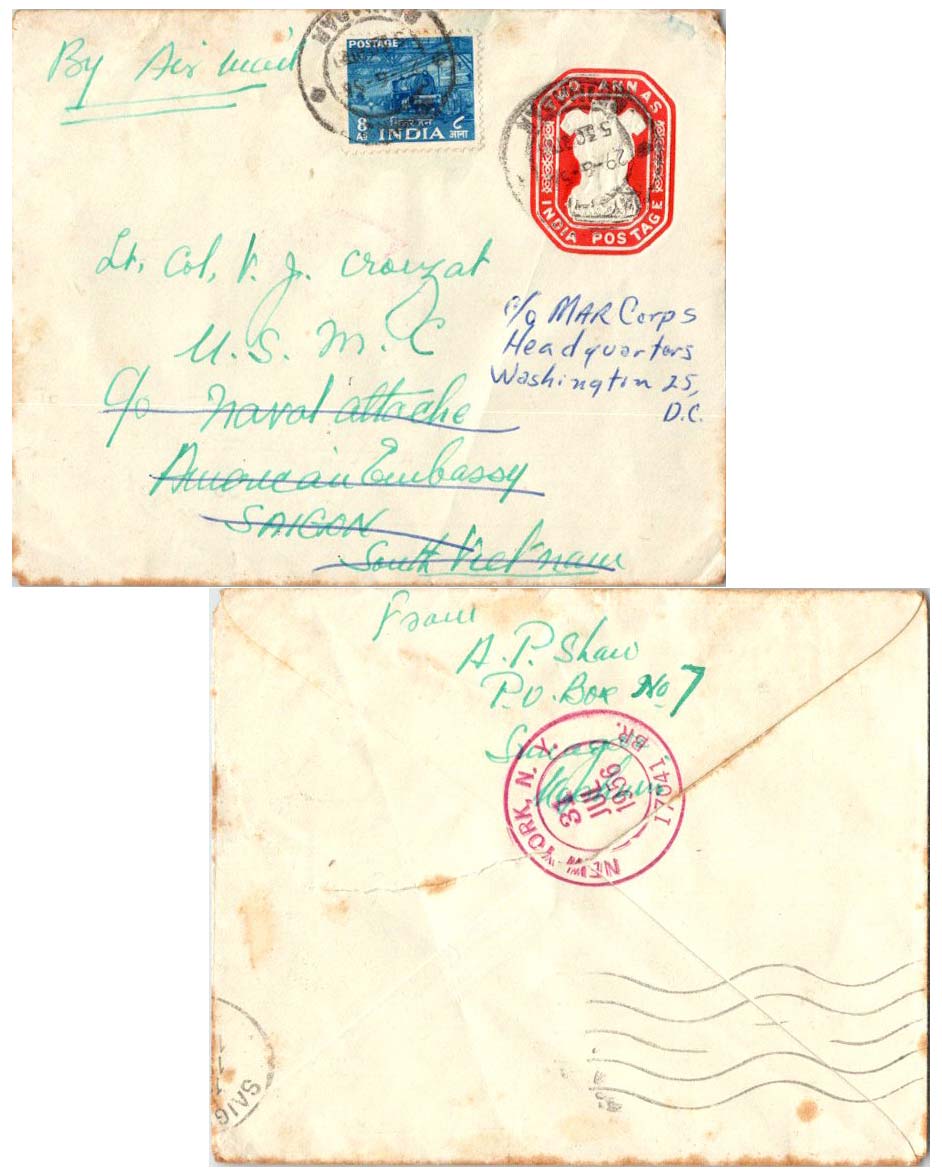 By Air mail
POSTAGE
8 As
INDIA
८ आना
TWO ANNAS
INDIA POSTAGE
Lt. Col. V. J. Crouzat
U. S. M. C
c/o Naval attache
American Embassy
SAIGON
South Vietnam
c/o MAR Corps
Headquarters
Washington 25,
D.C.
From
A. P. Shaw
P.O. Box No 7
NEW YORK, N. Y.
31
JUL
1956
17041 BR.
SAIG